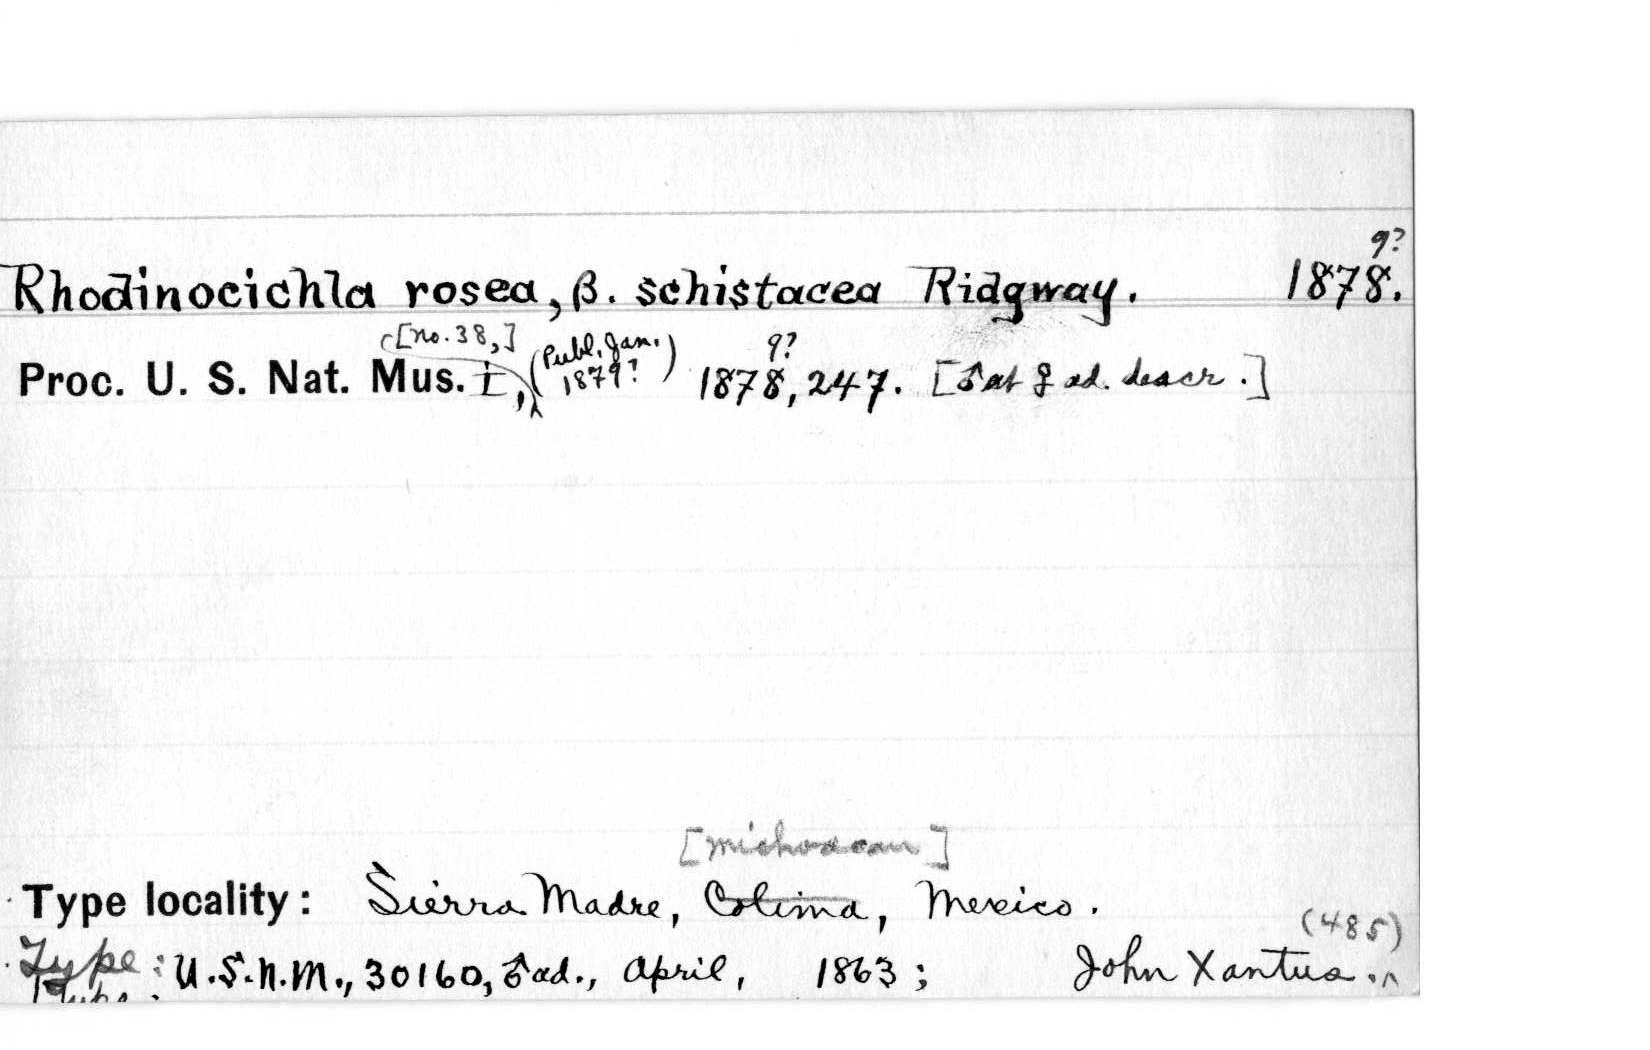 9?
Rhodinocichla rosea, β. schistacea Ridgway. 1878.
[no. 38,] (Publ. Jan. 1879?) 9?
Proc. U. S. Nat. Mus. I, 1878, 247. [♂ et ♀ ad. descr.]
[Michoacan]
Type locality: Sierra Madre, Colima, Mexico.
(485)
Type: U.S.N.M., 30160, ♂ ad., April, 1863; John Xantus.